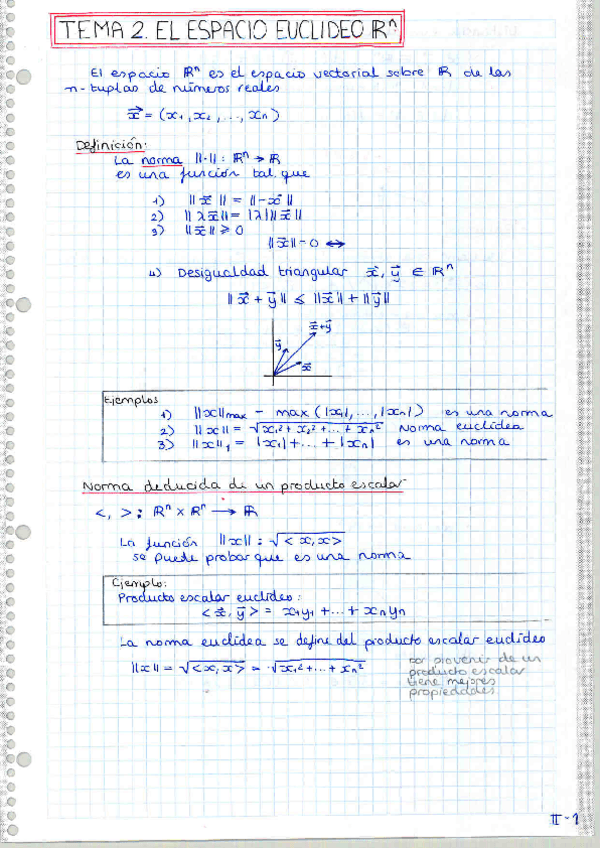 TEMA 2. EL ESPACIO EUCLIDEO ℝⁿ
El espacio ℝⁿ es el espacio vectorial sobre ℝ de las
n-tuplas de números reales
x⃗ = (x₁, x₂, ..., xₙ)
Definición:
La norma ‖·‖ : ℝⁿ → ℝ
es una función tal que
1) ‖x⃗‖ = ‖-x⃗‖
2) ‖λx⃗‖ = |λ|‖x⃗‖
3) ‖x⃗‖ ⩾ 0
‖x⃗‖ = 0 ↔
4) Desigualdad triangular x⃗, y⃗ ∈ ℝⁿ
‖x⃗ + y⃗‖ ⩽ ‖x⃗‖ + ‖y⃗‖
x⃗+y⃗
y⃗
x⃗
Ejemplos
1) ‖x‖max = max(|x₁|, ..., |xₙ|) es una norma
2) ‖x‖ = √x₁² + x₂² + ... + xₙ² Norma euclídea
3) ‖x‖₁ = |x₁| + ... + |xₙ| es una norma
Norma deducida de un producto escalar
<, > : ℝⁿ × ℝⁿ → ℝ
La función ‖x‖ : √<x,x>
se puede probar que es una norma
Ejemplo:
Producto escalar euclideo:
<x⃗, y⃗> = x₁y₁ + ... + xₙyₙ
La norma euclídea se define del producto escalar euclídeo
‖x‖ = √<x,x> = √x₁² + ... + xₙ²
por provenir de un
producto escalar
tiene mejores
propiedades
II-1